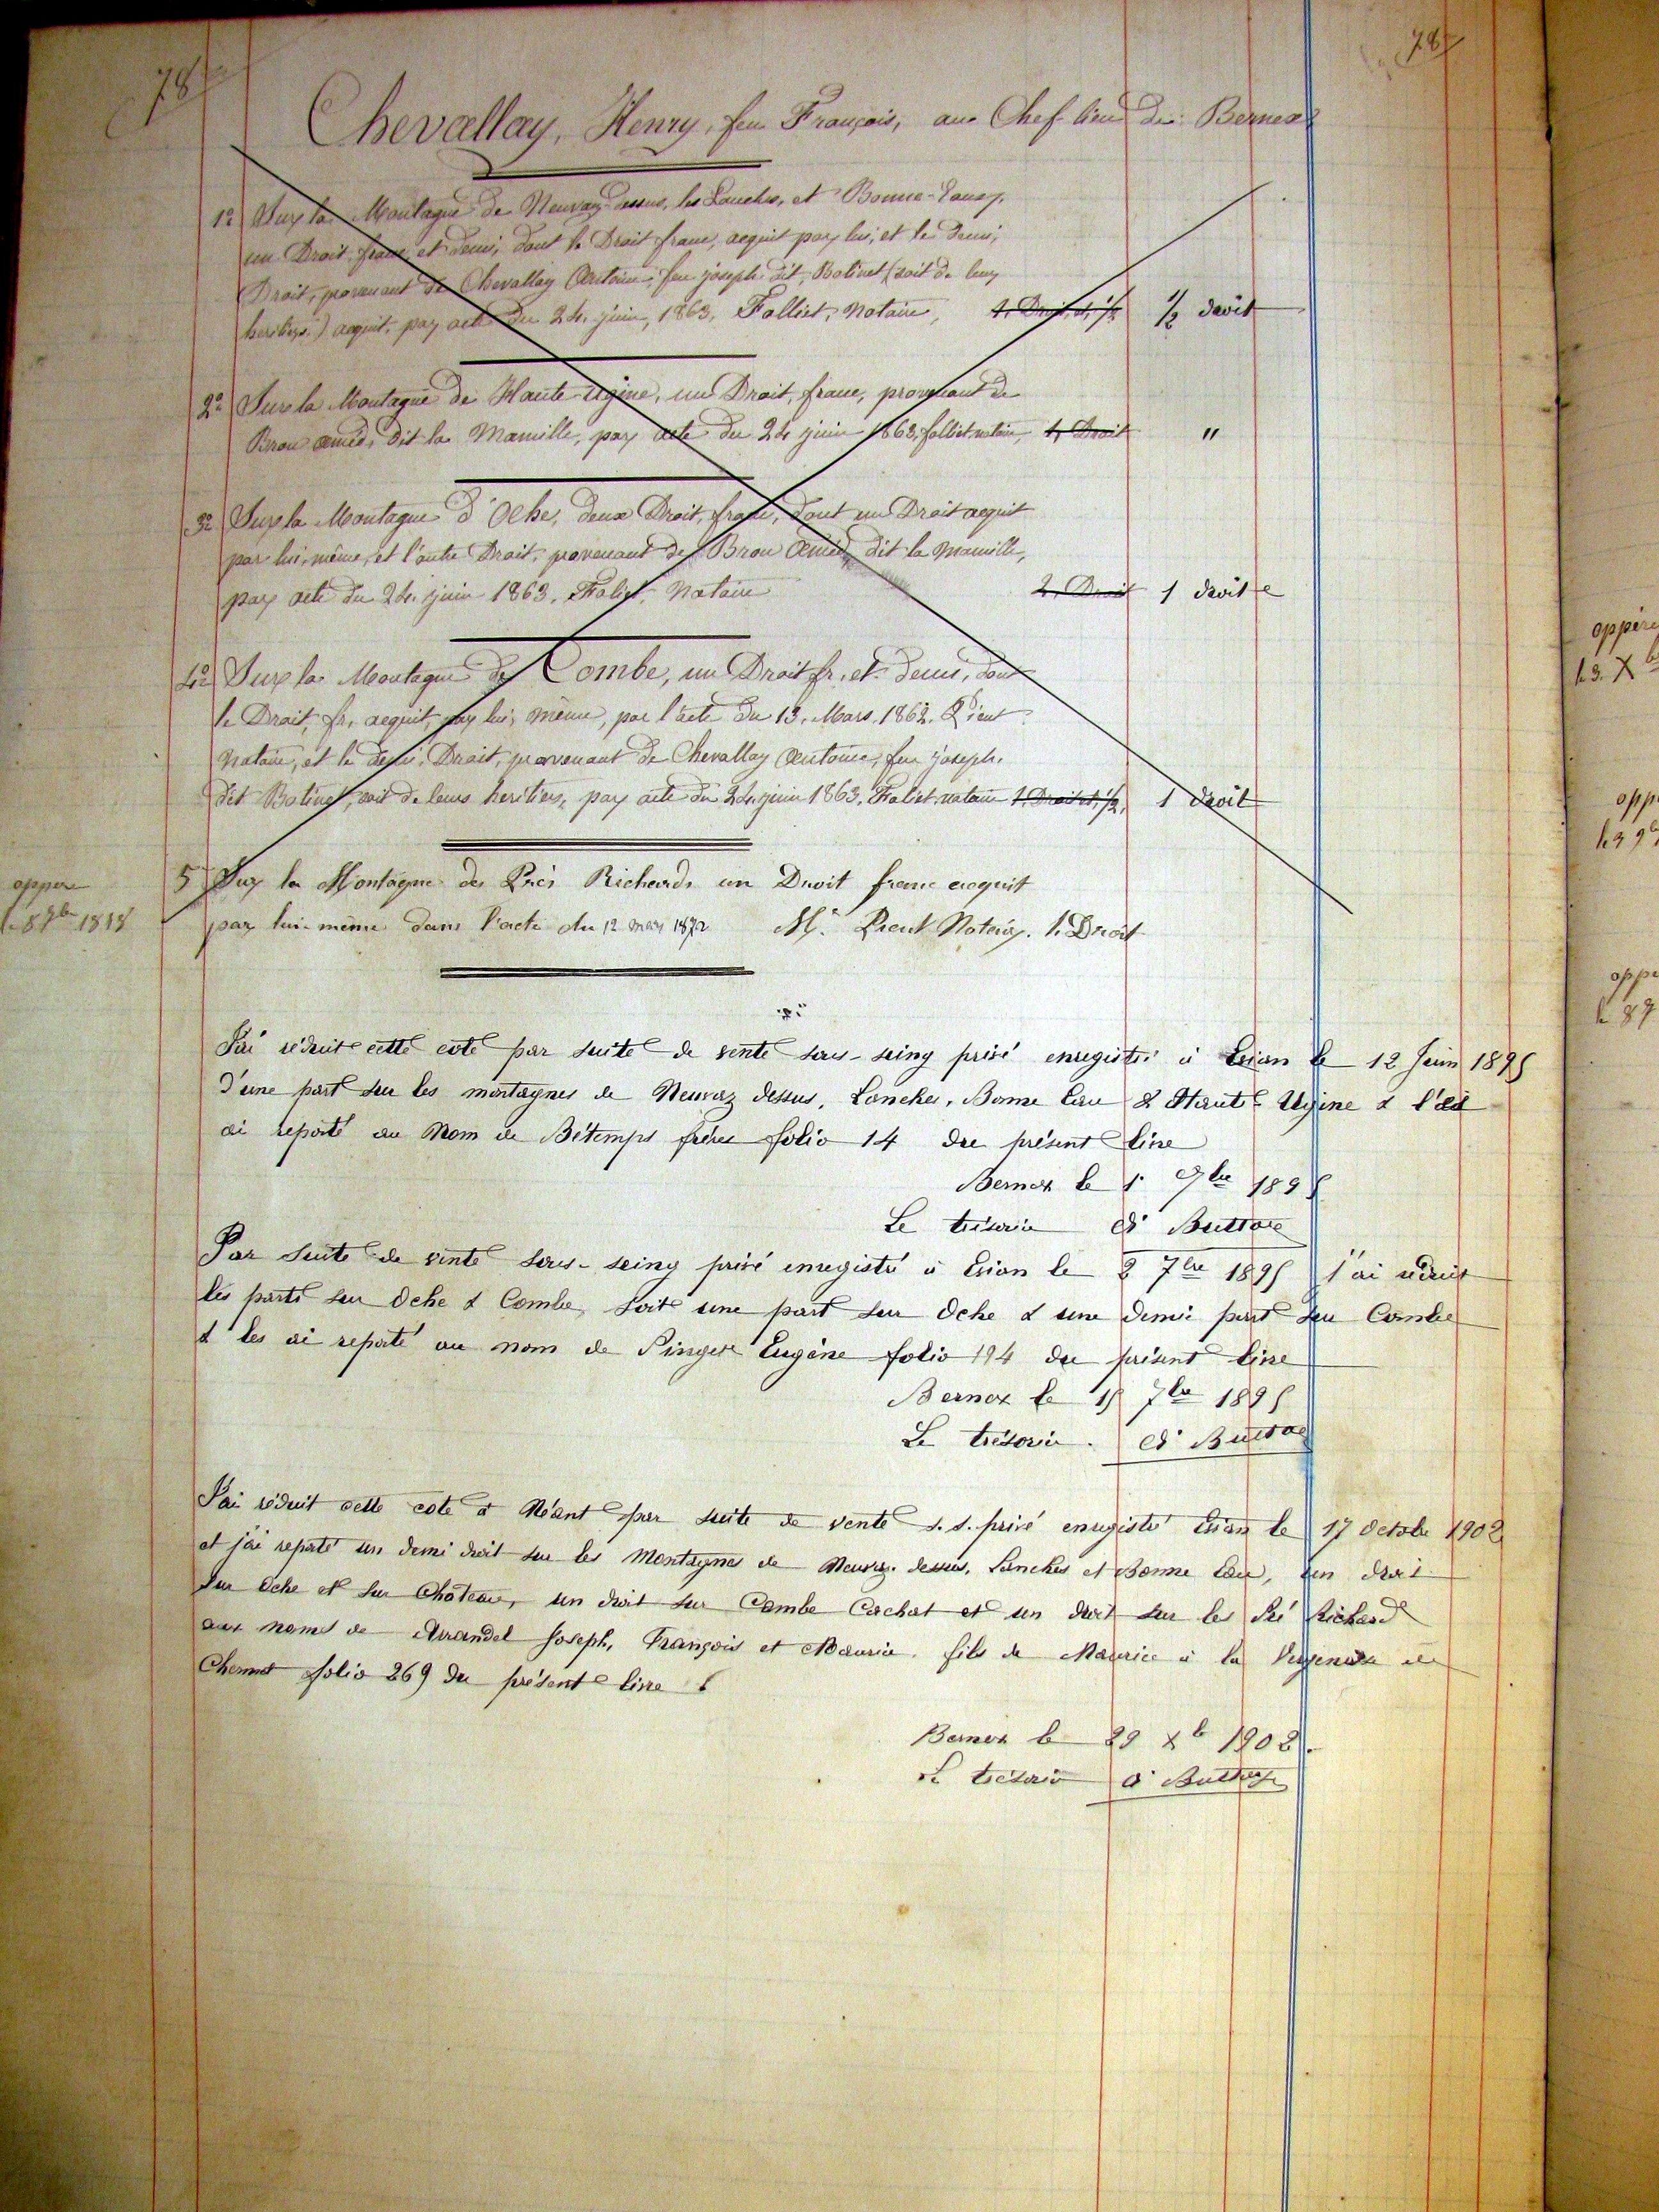 78
78
Chevallay, Henry, feu François, au Chef-lieu de Bernex
1º Sur la Montagne de Neuvaz-dessus, les Lanches, et Bonne-Eau,
un Droit, franc, et demi, dont le Droit franc, acquit par lui, et le demi,
Droit, provenant de Chevallay Antoine, feu joseph dit, Bolinet (soit de leur
heritiers,) acquit, par acte du 24. juin, 1863, Folliet, Notaire, 1. Droit, et, 1/2 1/2 droit
2º Sur la Montagne de Haute-Ugine, un Droit, franc, provenant de
Brou amié, dit la Mamille, par acte du 24 juin 1863, folliet notaire, 1, Droit "
3º Sur la Montagne d'Oche, deux Droit, franc, dont un Droit acquit
par lui, même, et l'autre Droit, provenant de Brou Amié, dit la Mamille,
par acte du 24. juin 1863, Foliet, Notaire 2. Droit 1 droit
4º Sur la Montagne de Combe, un Droit fr. et demi, dont
le Droit, fr. acquit, par lui, même, par l'acte du 13. Mars. 1862.
Notaire, et le demi, Droit, provenant de Chevallay Antoine, feu joseph,
dit Bolinet, soit de leurs heritiers, par acte du 24. juin 1863, Foliet notaire 1. Droit et, 1/2, 1 droit
5 Sur la Montagne des Près Richards un Droit franc acquit
par lui-même dans l'acte du 12 mars 1872 Mr. Notaire. 1. Droit
J'ai réduit cette cote par suite de vente sous-seing privé enregistré à Evian le 12 Juin 1895
d'une part sur les montagnes de Neuvaz dessus, Lanches, Bonne Eau & Haute-Ugine & l'ai
ai reporté au Nom de Bétemps frères folio 14 du présent livre
Bernex le 1. 1895
Le trésorier
Par suite de vente sous-seing privé enregistré à Evian le 2 7bre 1895 j'ai réduit
les parts sur Oche & Combe, soit une part sur Oche & une demi part sur Combe
& les ai reporté au nom de Pinget Eugène folio 194 du présent livre
Bernex le 15 7bre 1895
Le trésorier.
J'ai réduit cette cote à Néant par suite de vente s.s. privé enregistré Evian le 17 octobre 1902
et j'ai reporté un demi droit sur les Montagnes de Neuvaz dessus, Lanches et Bonne Eau, un droit
sur Oche et sur Château, un droit sur Combe Cachat et un droit sur les Pré Richard
aux noms de Arrandel Joseph, François et Maurice, fils de Maurice à la
folio 269 du présent livre
Bernex le 29 Xb 1902.
Le trésorier